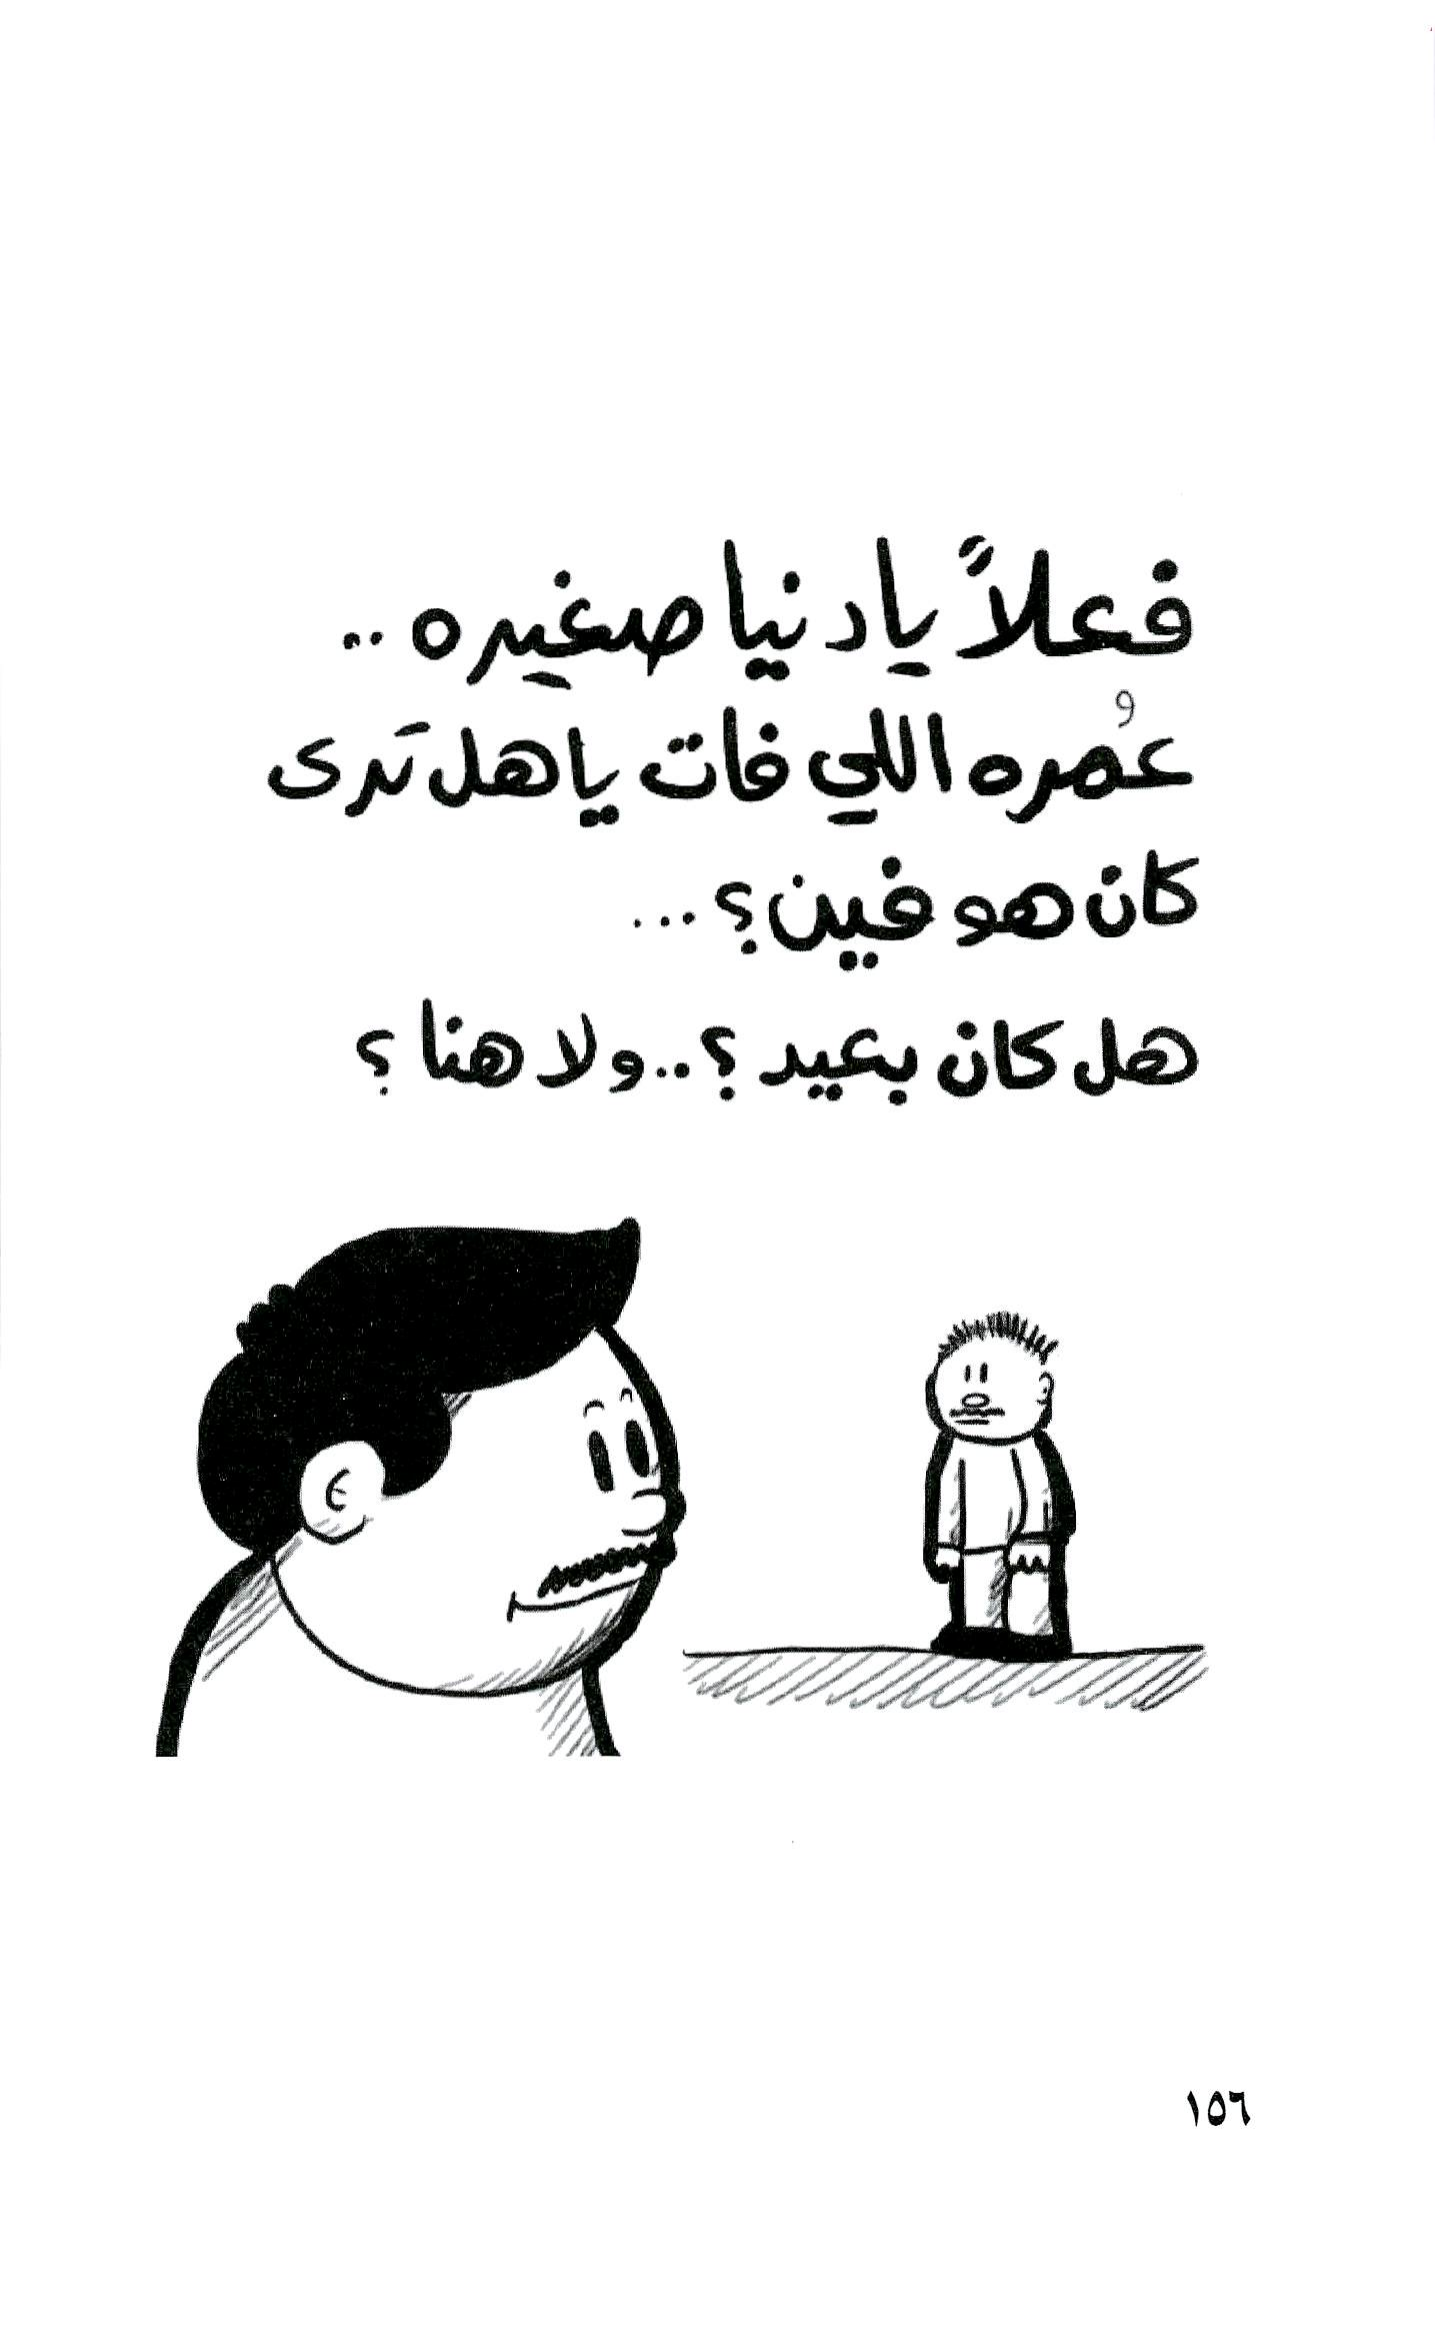 فعلاً يا دنيا صغيره ..
عُمره اللي فات يا هل تَرى
كان هو فين؟...
هل كان بعيد؟.. ولا هنا؟
١٥٦